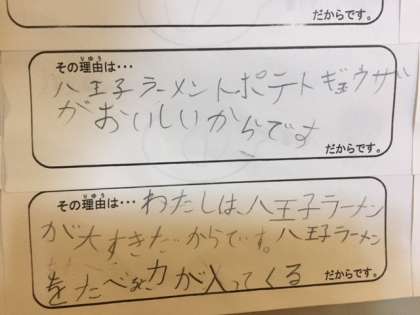 だからです。
その理由は…
りゆう
八王子ラーメントポテトギョウザ
がおいしいからです
だからです。
その理由は…わたしは、八王子ラーメン
りゆう
が大すきだからです。八王子ラーメン
をたべ 力が入ってくる
だからです。